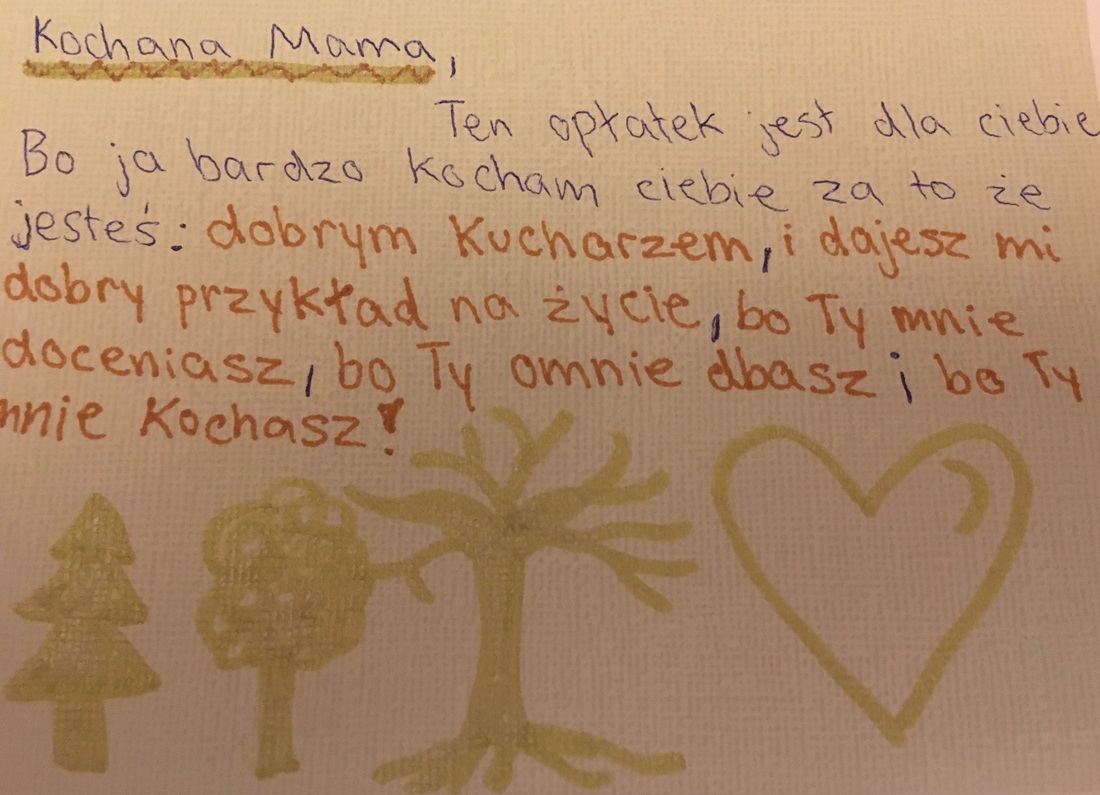 Kochana Mama,
Ten opłatek jest dla ciebie
Bo ja bardzo kocham ciebie za to że
jesteś: dobrym Kucharzem, i dajesz mi
dobry przykład na życie, bo Ty mnie
doceniasz, bo Ty omnie dbasz i bo Ty
mnie Kochasz!